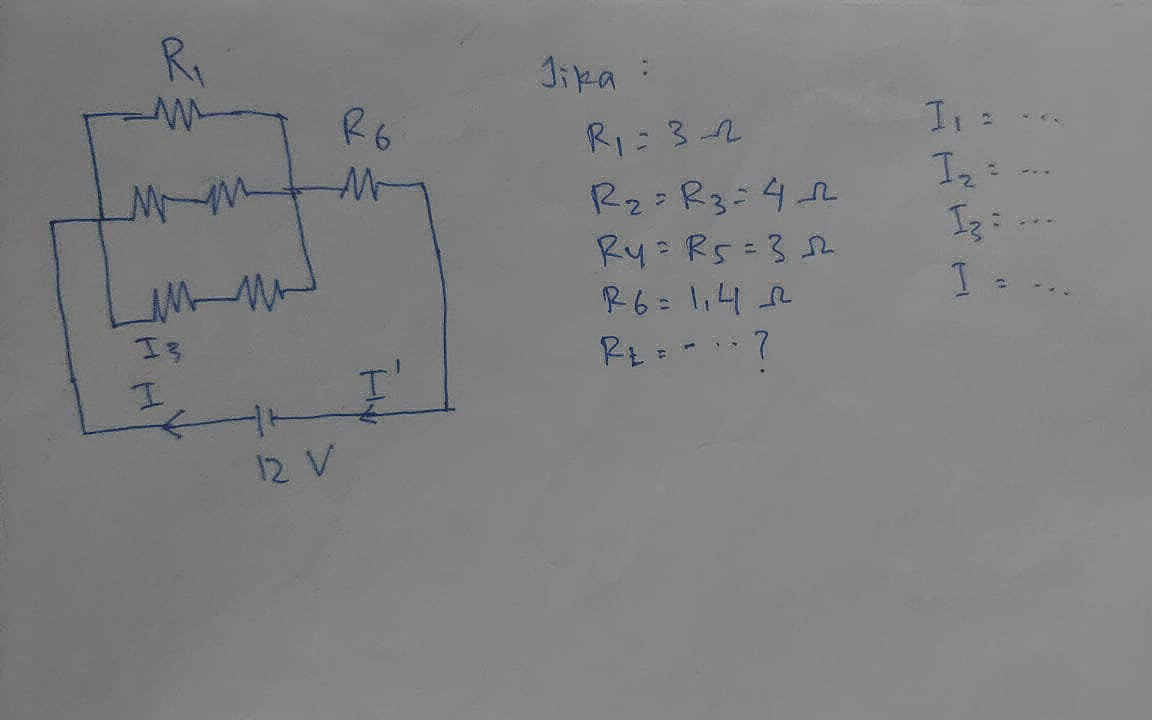 R₁
R6
I3
I
I'
12 V
Jika :
R₁ = 3 Ω
R₂ = R₃ = 4 Ω
R4 = R5 = 3 Ω
R6 = 1,4 Ω
Rt = - ... ?
I₁ = ...
I₂ = ...
I₃ = ...
I = ...